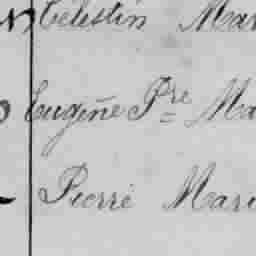 Celestin Mar
Eugène Pre Ma
Pierre Mari